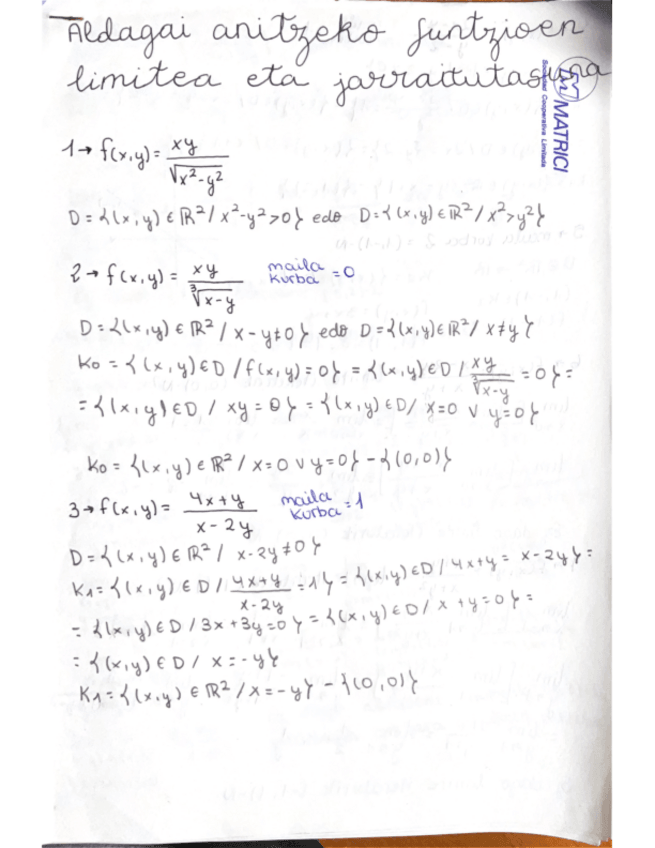 Aldagai anitzeko funtzioen
limitea eta jarraitutasuna
MATRICI
Sociedad Cooperativa Limitada
1→ f(x,y)= xy / √(x²-y²)
D={(x,y)∈ℝ²/ x²-y²>0} edo D={(x,y)∈ℝ²/x²>y²}
2→ f(x,y)= xy / ∛(x-y) maila kurba =0
D={(x,y)∈ℝ²/ x-y≠0} edo D={(x,y)∈ℝ²/ x≠y}
K0 = {(x,y)∈D /f(x,y)=0} = {(x,y)∈D / xy / ∛(x-y) =0}=
= {(x,y)∈D / xy=0} = {(x,y)∈D/ x=0 ∨ y=0}
K0= {(x,y)∈ℝ²/ x=0∨y=0} - {(0,0)}
3→f(x,y)= 4x+y / x-2y maila kurba =1
D={(x,y)∈ℝ²/ x-2y≠0}
K1={(x,y)∈D/ 4x+y / x-2y =1} = {(x,y)∈D/ 4x+y= x-2y}=
= {(x,y)∈D /3x+3y=0} = {(x,y)∈D/ x+y=0}=
= {(x,y)∈D / x=-y}
K1={(x,y)∈ℝ²/x=-y} - {(0,0)}